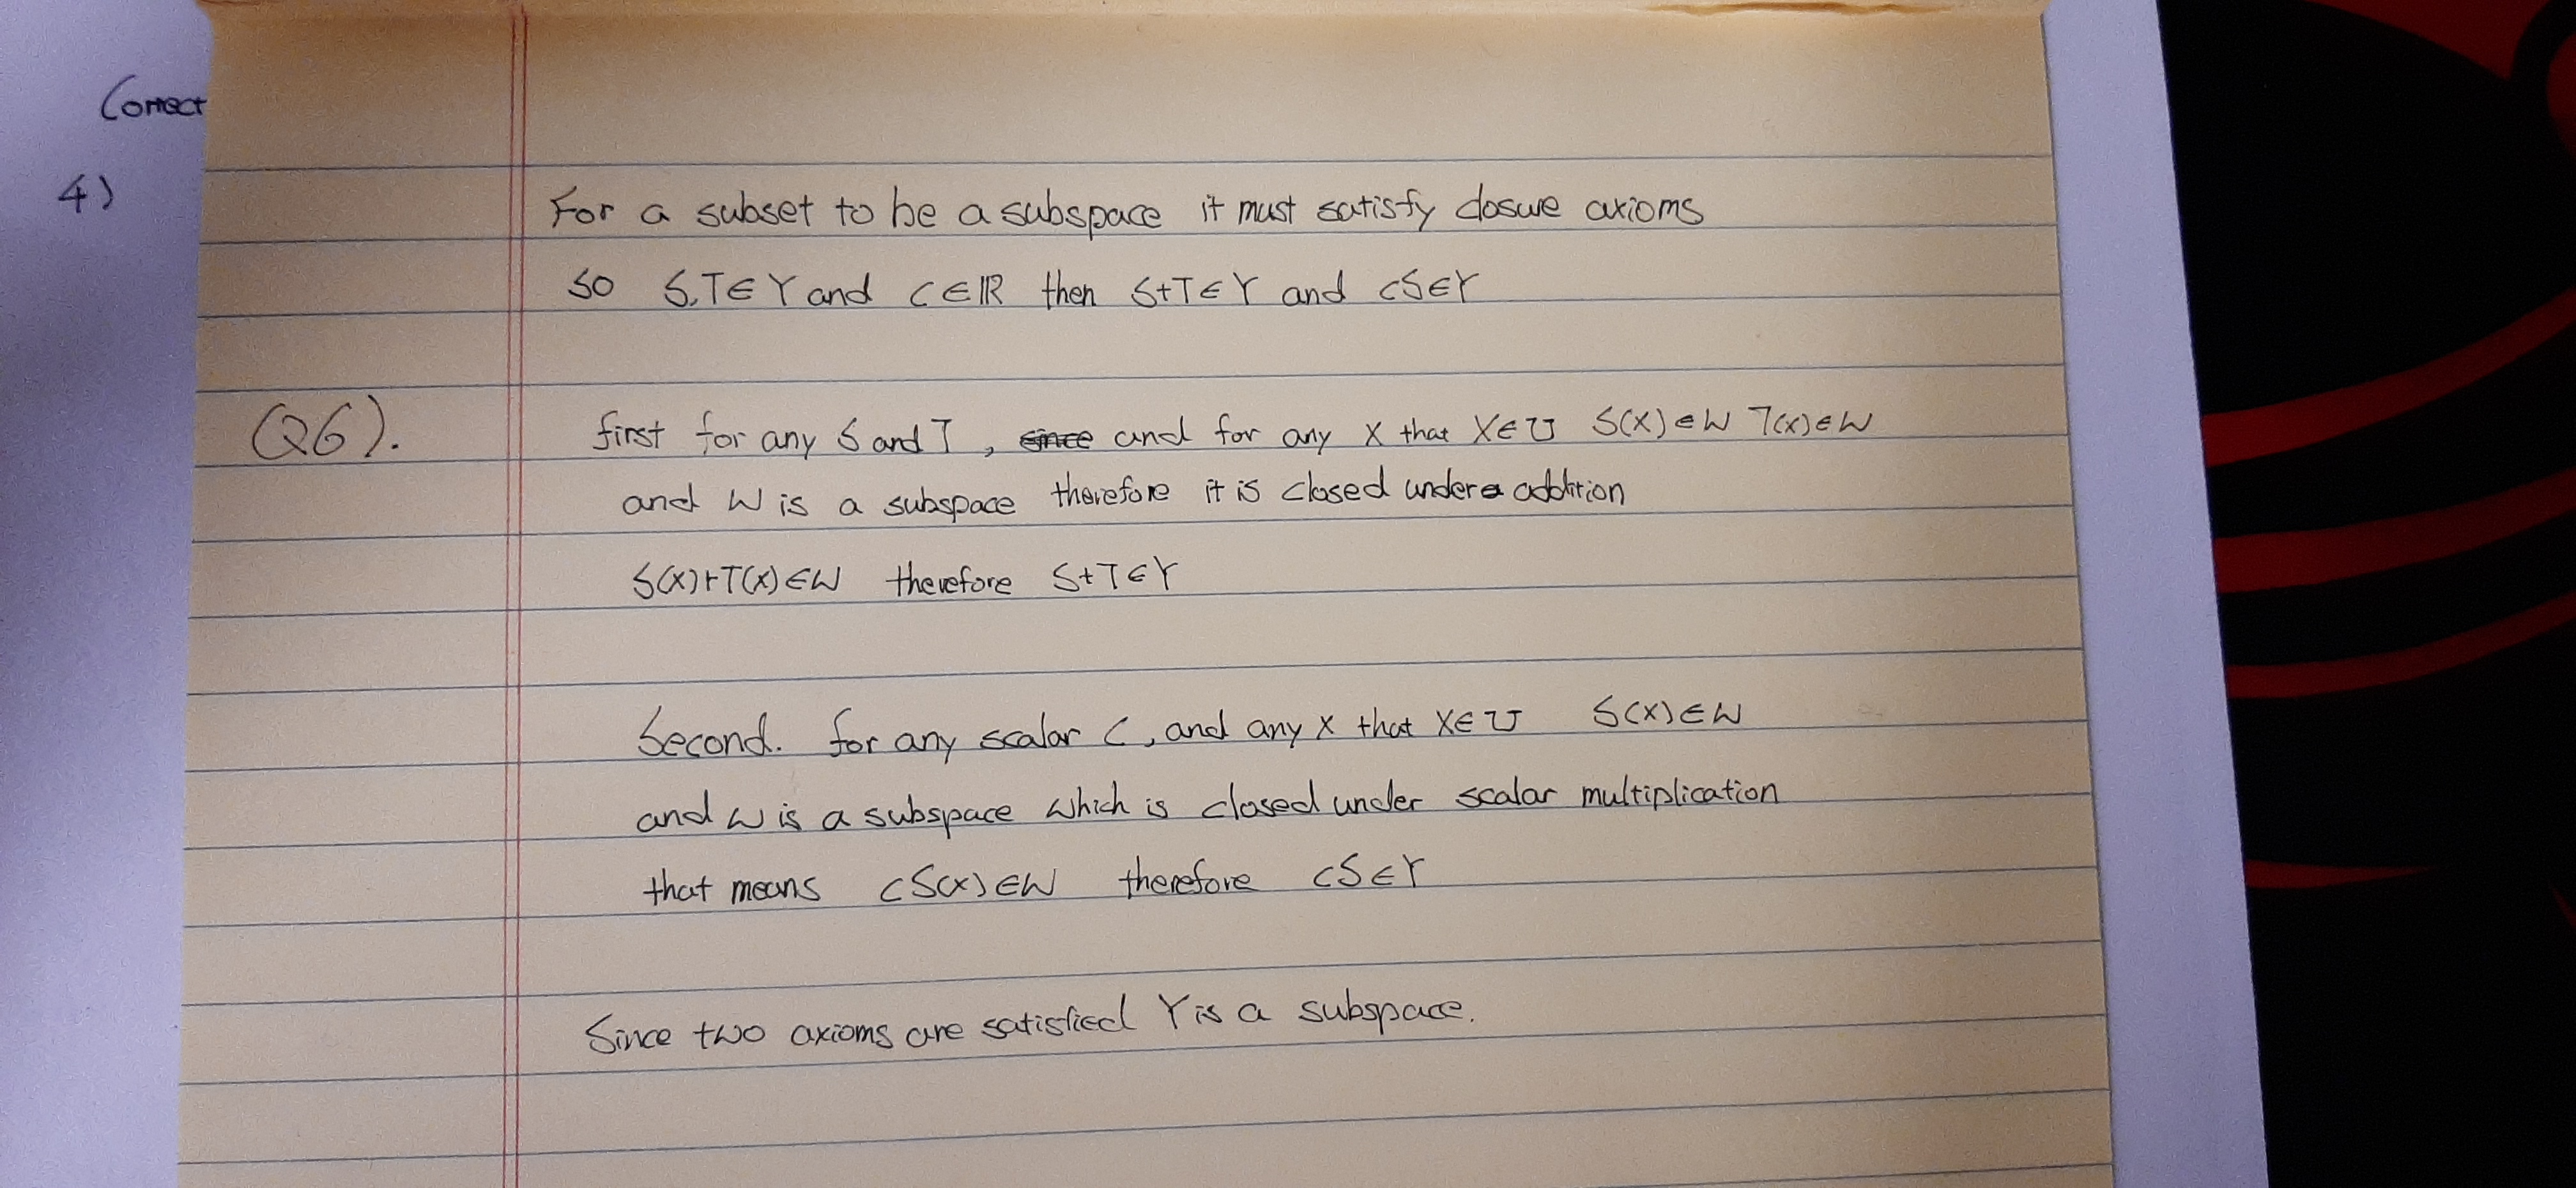 Correct
4)
For a subset to be a subspace it must satisfy closure axioms
so S,T∈Y and c∈ℝ then S+T∈Y and cS∈Y
Q6).
first for any S and T, since and for any x that x∈U S(x)∈W T(x)∈W
and W is a subspace therefore it is closed under addition
S(x)+T(x)∈W therefore S+T∈Y
Second. for any scalar c, and any x that x∈U S(x)∈W
and W is a subspace which is closed under scalar multiplication
that means cS(x)∈W therefore cS∈Y
Since two axioms are satisfied Y is a subspace.